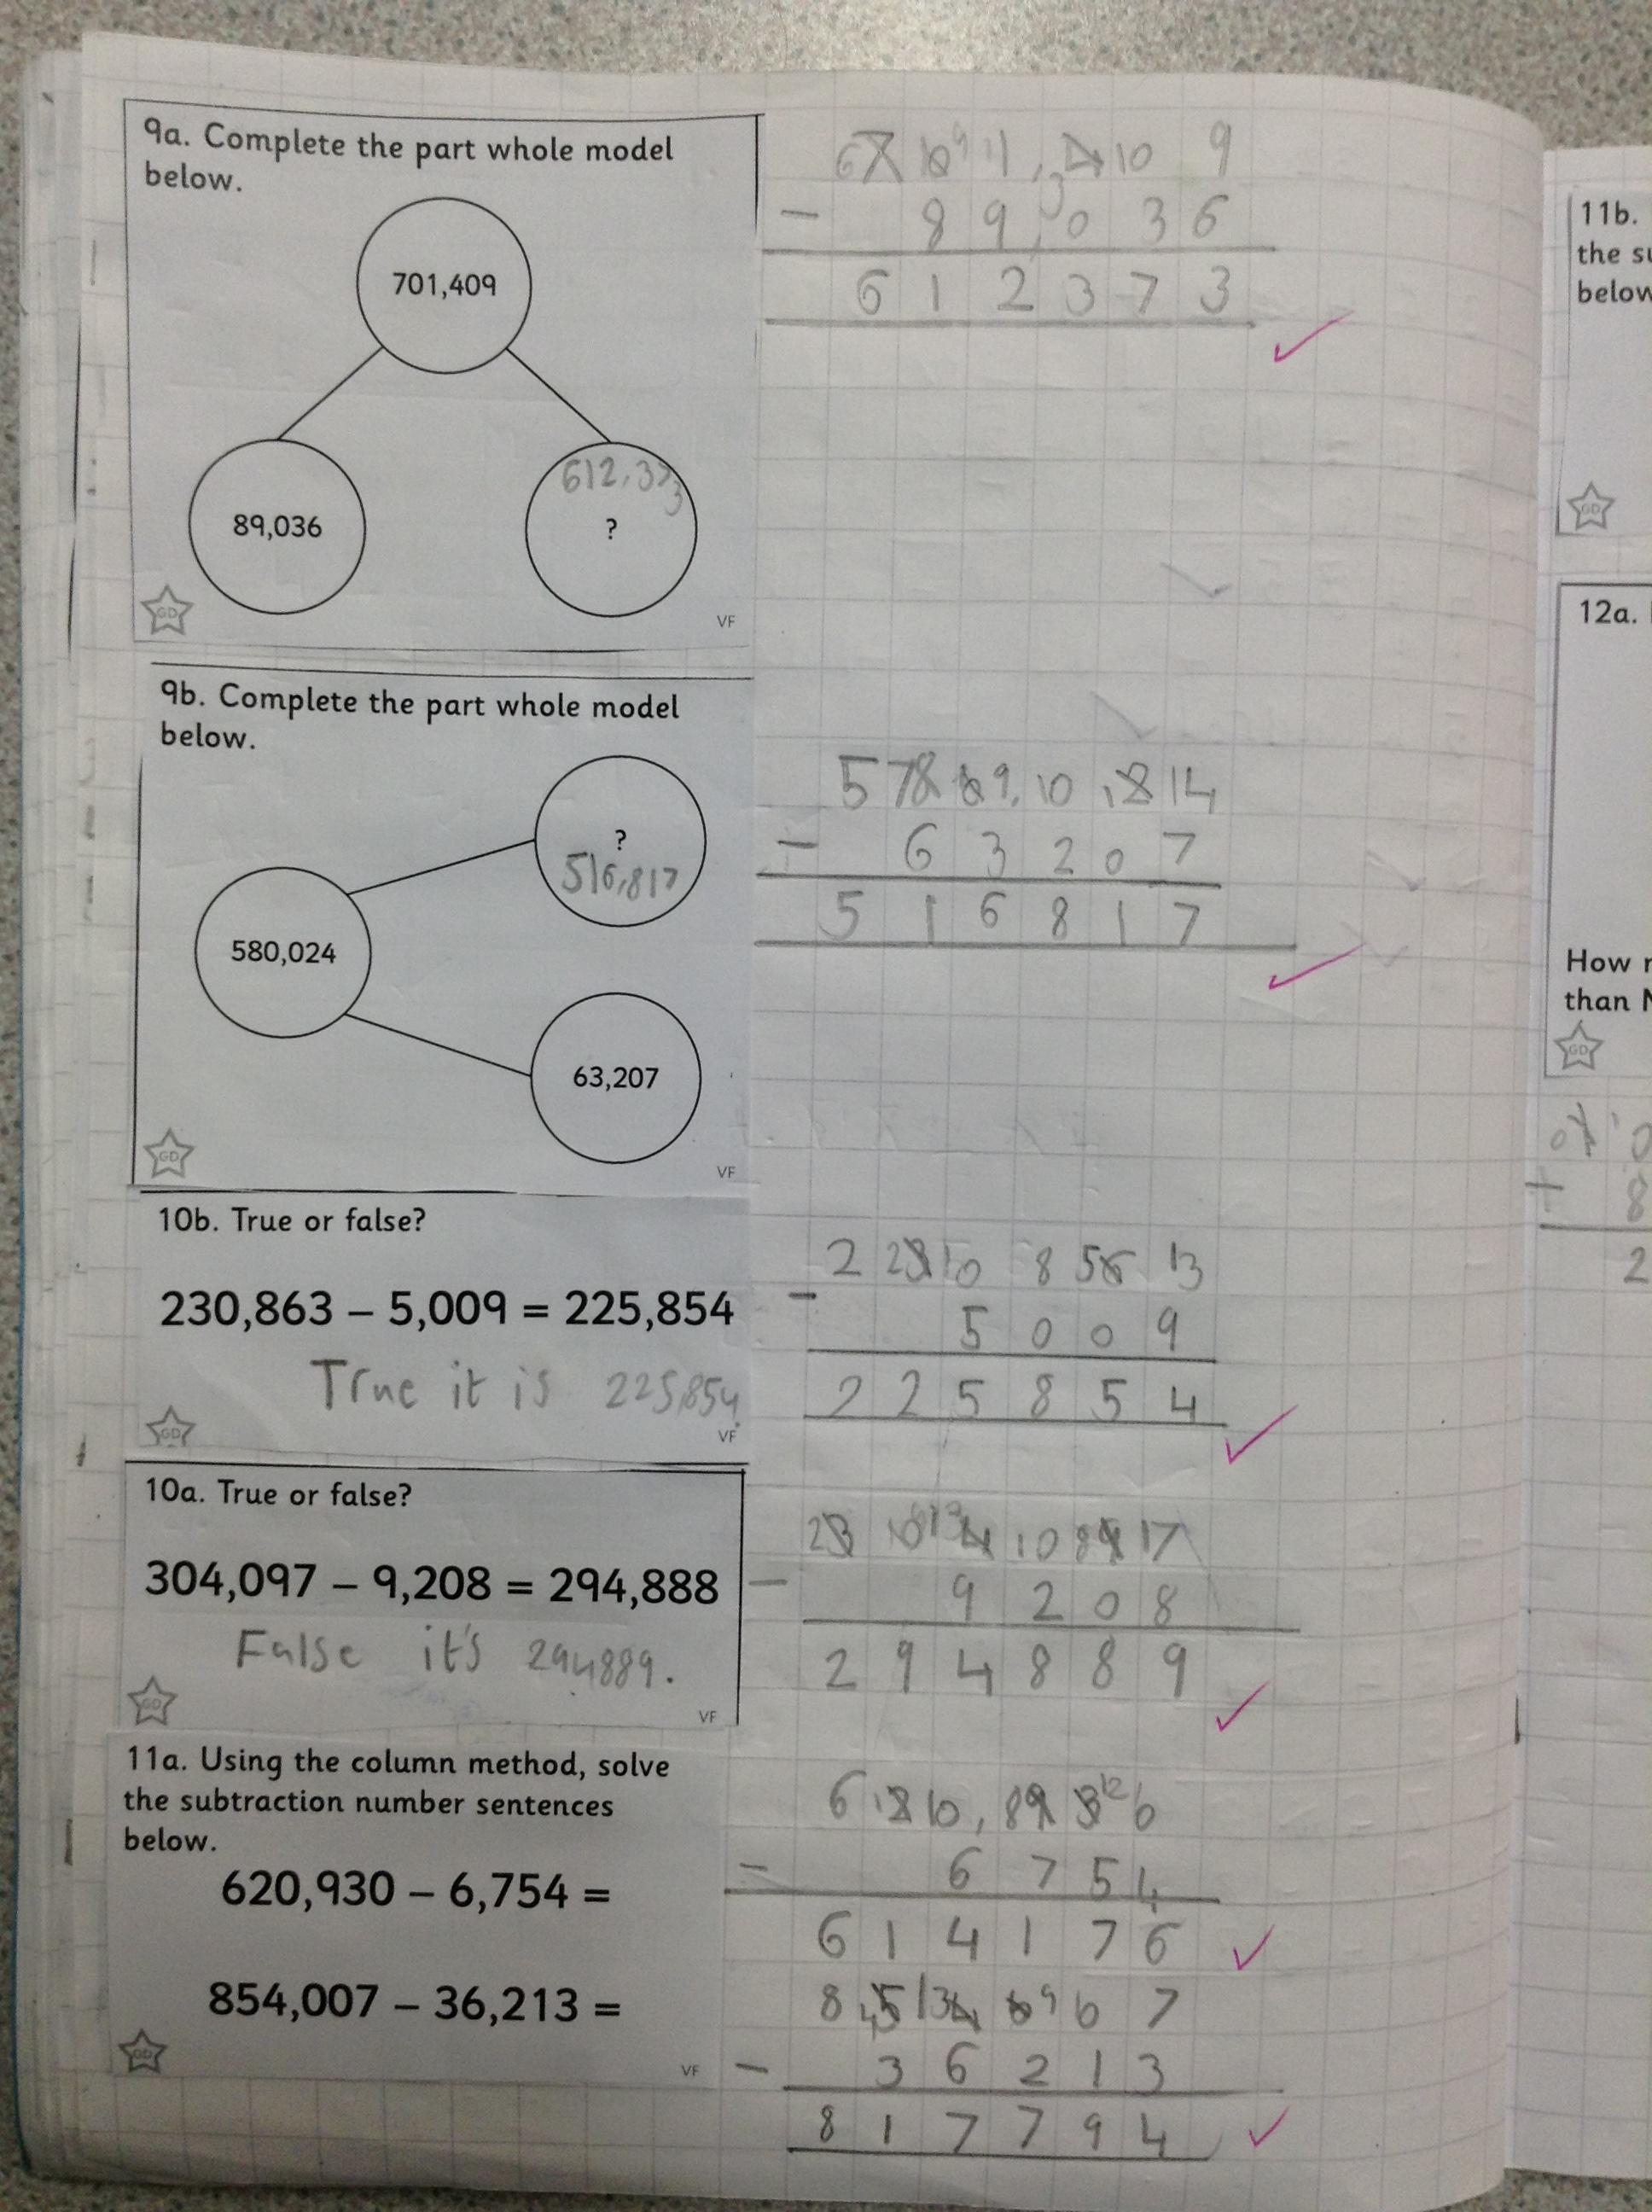 9a. Complete the part whole model
below.
701,409
89,036
612,373
?
GD
VF
9
- 8 9, 0 3 6
6 1 2 3 7 3
9b. Complete the part whole model
below.
?
516,817
580,024
63,207
GD
VF
- 6 3 2 0 7
5 1 6 8 1 7
10b. True or false?
230,863 – 5,009 = 225,854
True it is 225,854.
GD
VF
- 5 0 0 9
2 2 5 8 5 4
10a. True or false?
304,097 – 9,208 = 294,888
False it's 294889.
GD
VF
- 9 2 0 8
2 9 4 8 8 9
11a. Using the column method, solve
the subtraction number sentences
below.
620,930 – 6,754 =
854,007 – 36,213 =
GD
VF
- 6 7 5 4
6 1 4 1 7 6
- 3 6 2 1 3
8 1 7 7 9 4
11b.
below
GD
12a.
How
than
GD
8
2